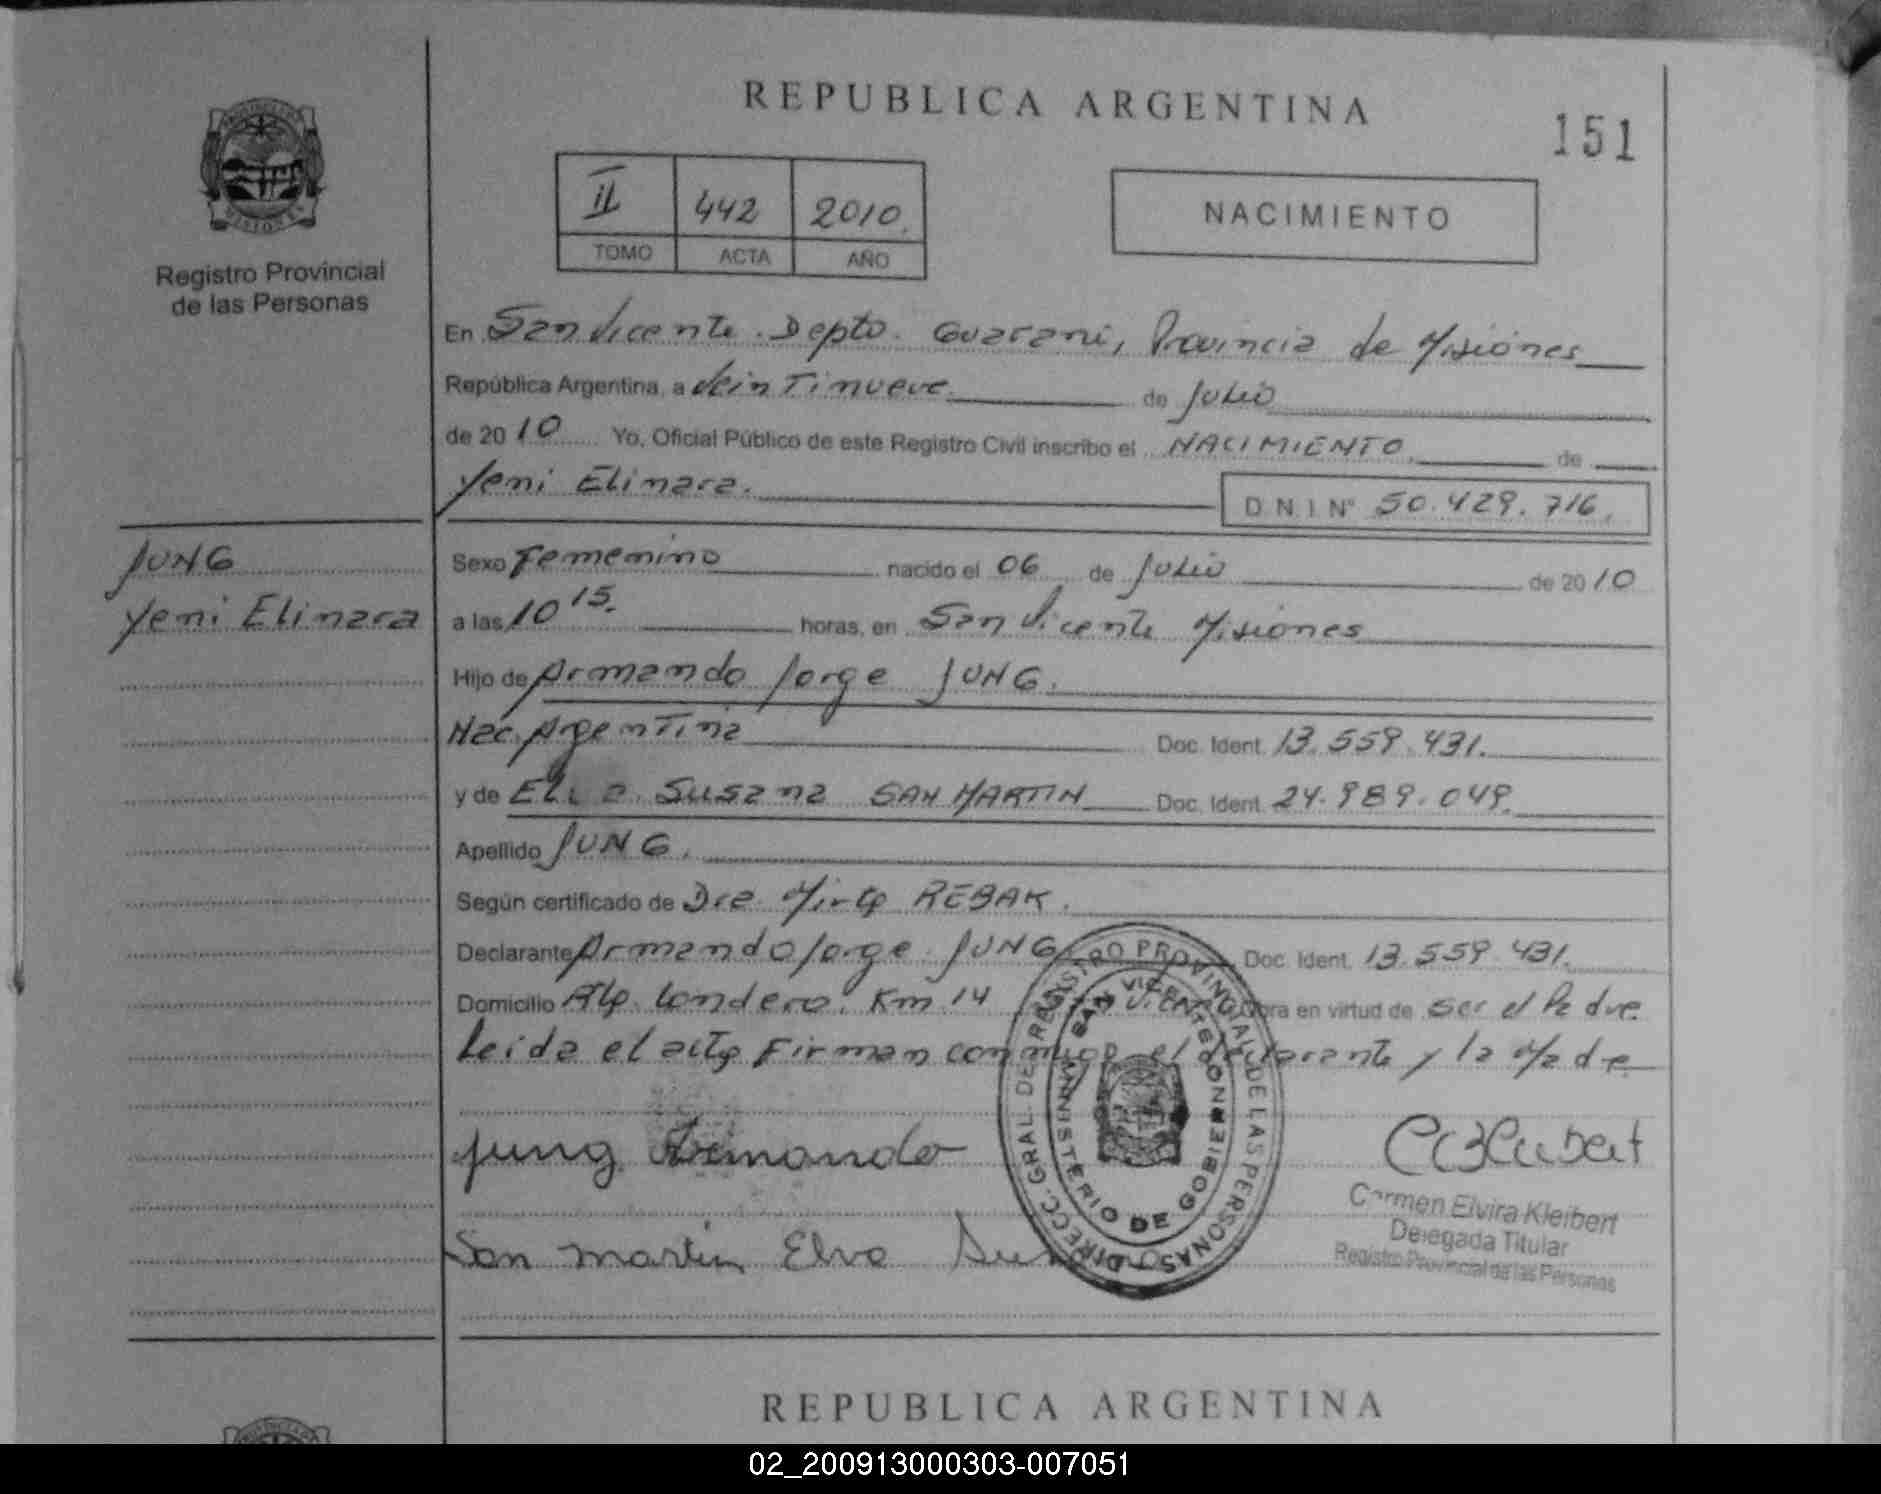 REPUBLICA ARGENTINA
151
II 442 2010.
TOMO ACTA AÑO
NACIMIENTO
PROVINCIA DE MISIONES
Registro Provincial
de las Personas
En San Vicente. Depto. Guarani, Provincia de Misiones
República Argentina, a Veintinueve de Julio
de 2010 Yo, Oficial Público de este Registro Civil inscribo el NACIMIENTO de
Yeni Elinara. D.N.I. N° 50.429.716.
JUNG
Yeni Elinara
Sexo Femenino nacido el 06 de Julio de 2010
a las 10 15. horas, en San Vicente Misiones
Hijo de Armando Jorge JUNG.
Nac. Argentina Doc. Ident. 13.559.431.
y de Susana SAN MARTIN Doc. Ident. 24.989.049.
Apellido JUNG.
Según certificado de Dra. Mirta REBAK.
Declarante Armando Jorge JUNG Doc. Ident. 13.559.431.
Domicilio Londero. Km 14 Obra en virtud de ser el Padre
Leida el acta Firman conmigo el declarante y la Madre
Jung Armando
San Martin Elva
DIRECC. GRAL. DE REGISTRO PROVINCIAL DE LAS PERSONAS
SAN VICENTE
MINISTERIO DE GOBIERNO
Carmen Elvira Kleibert
Delegada Titular
Registro Provincial de las Personas
REPUBLICA ARGENTINA
02_200913000303-007051